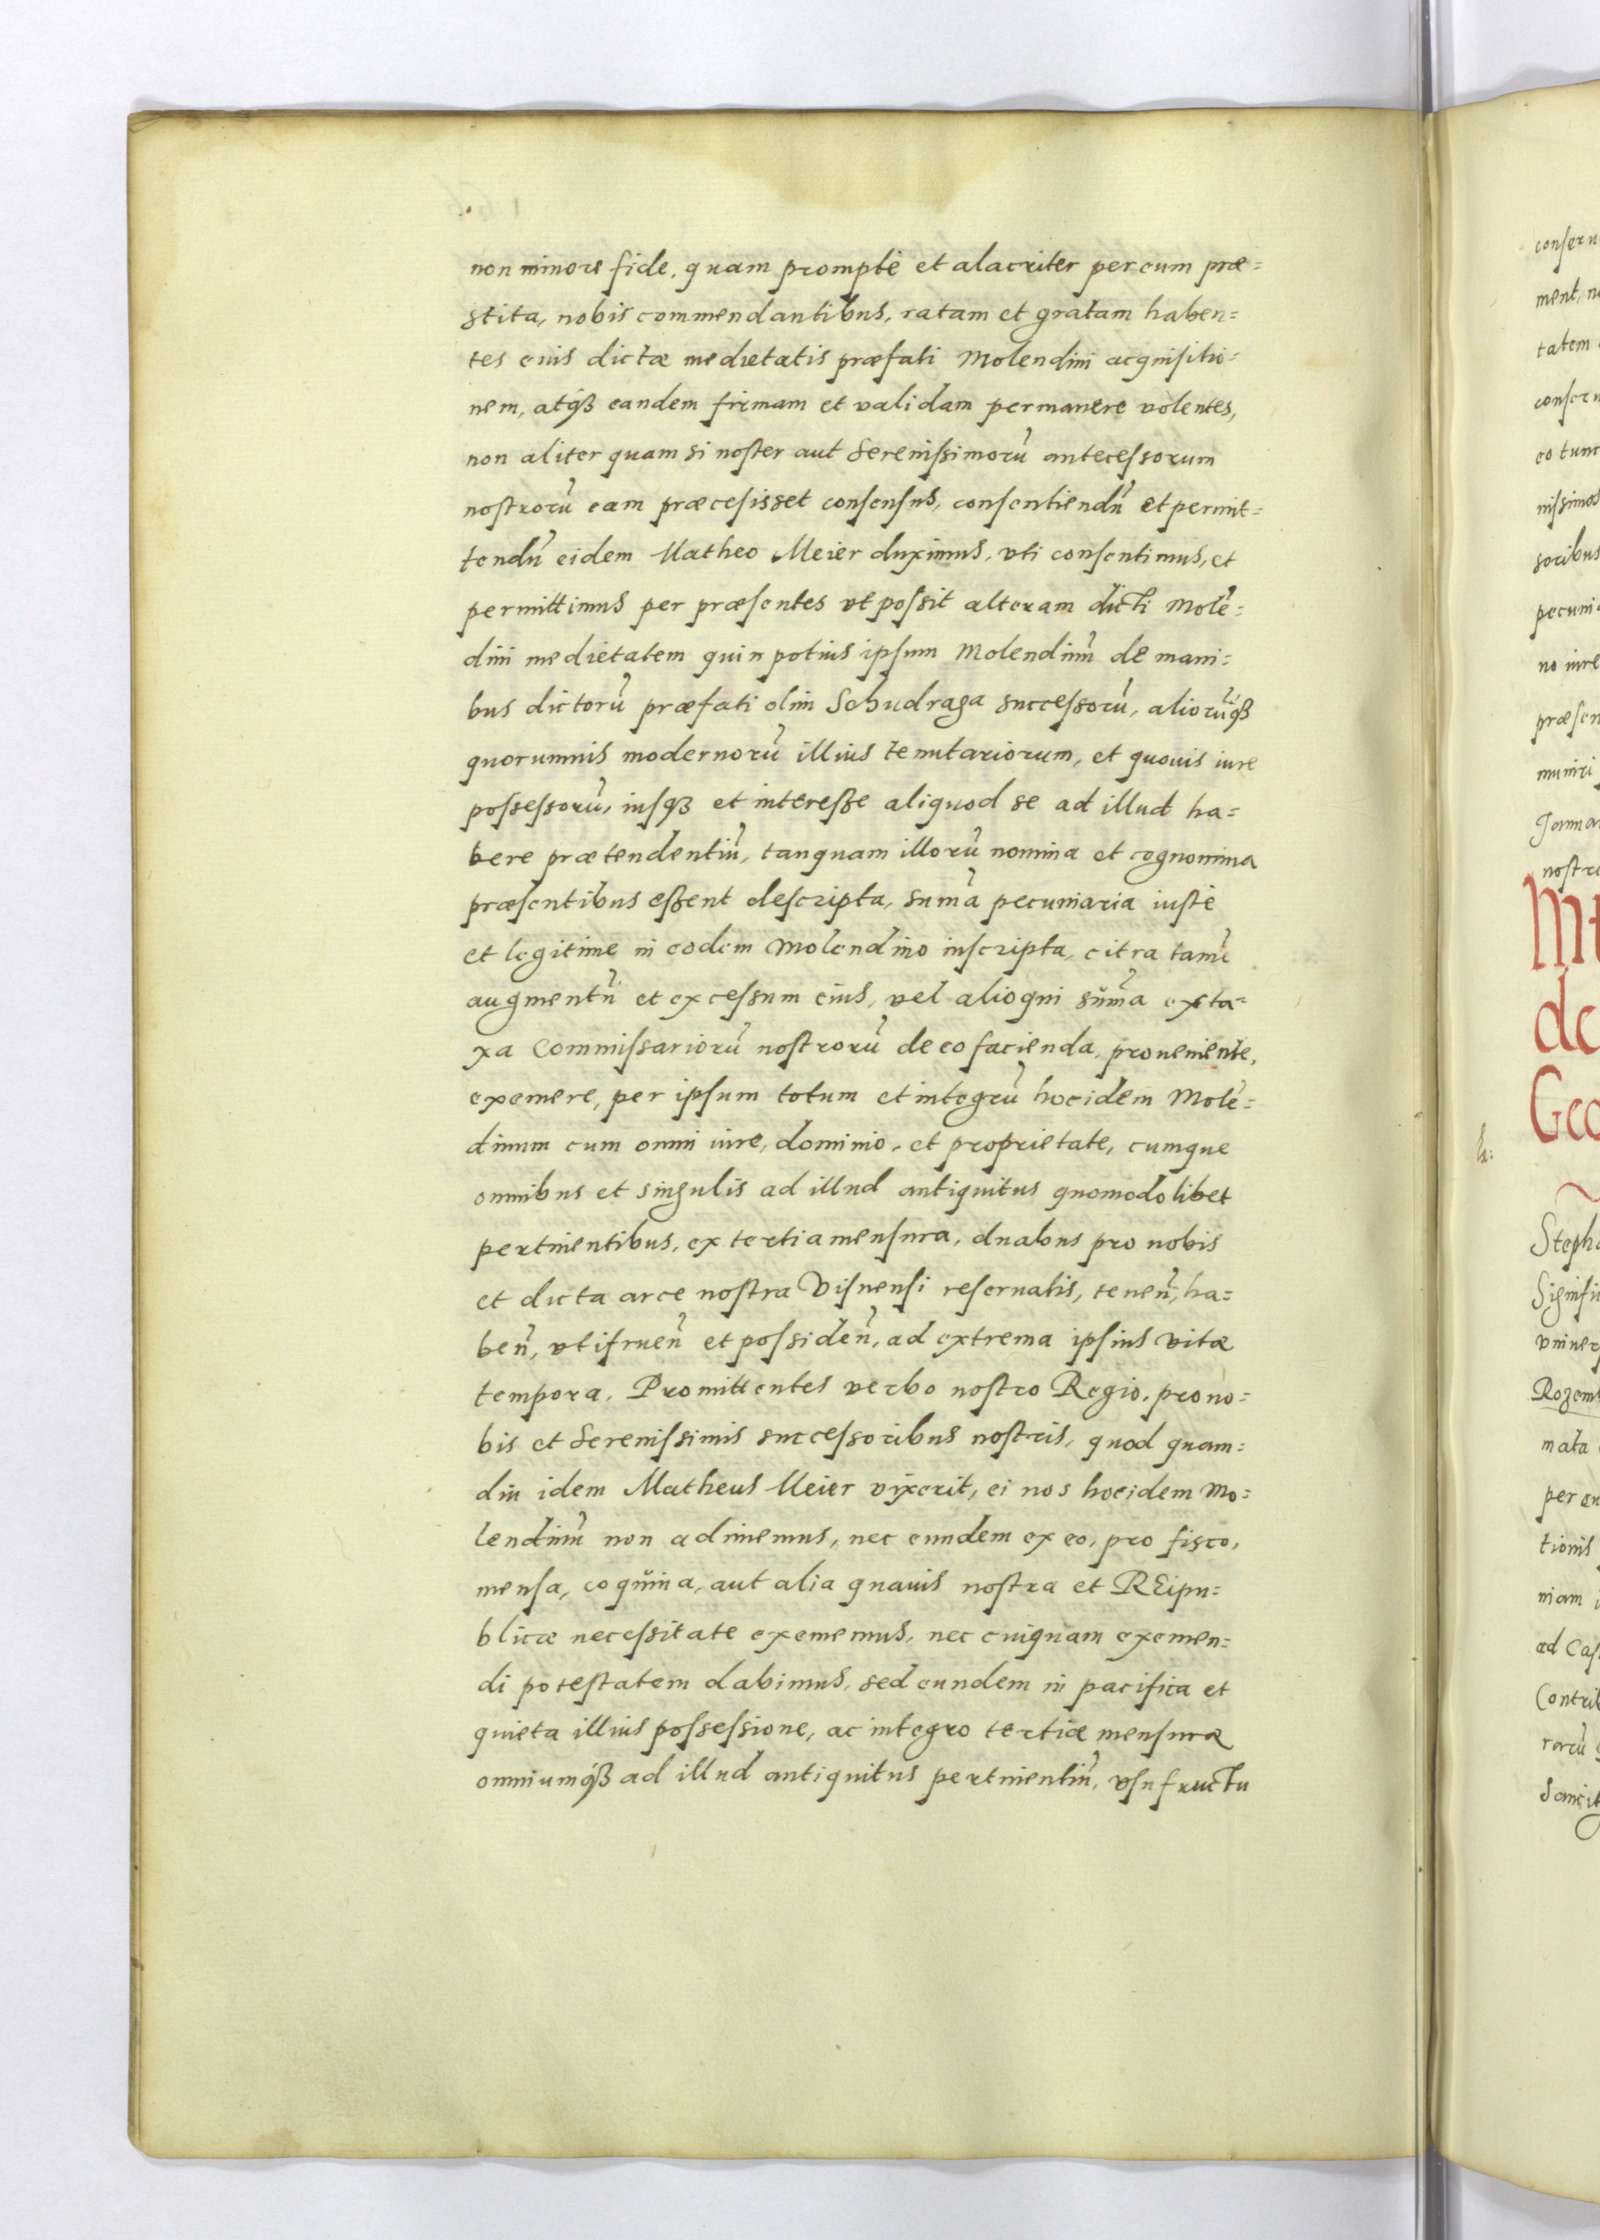 non minore fide, quam promptè et alacriter per eum præ=
stita, nobis commendantibus, ratam et gratam haben=
tes eius dictæ medietatis præfati Molendini acquisitio=
nem, atq₃ eandem firmam et validam permanere volentes,
non aliter quam si noster aut Serenissimorũ antecessorum
nostrorũ eam præcesisset consensus, consentiendũ et permit=
tendũ eidem Matheo Meier duximus, vti consentimus, et
permittimus per præsentes vt possit alteram dicti Molẽ=
dini medietatem quin potius ipsum Molendinũ de mani=
bus dictorũ præfati olim Schudraga successorũ, aliorũq₃
quorumuis modernorũ illius tenutariorum, et quouis iure
possessorũ, iusq₃ et interesse aliquod se ad illud ha=
bere prætendentiũ, tanquam illorũ nomina et cognomina
præsentibus essent descripta, sum̃a pecuniaria iustè
et legitime in eodem Molendino inscripta, citra tamẽ
augmentũ et excessum eius, vel alioqui sum̃a ex ta=
xa Commissariorũ nostrorũ de eo facienda, proueniente,
exemere, per ipsum totum et integrũ hocidem Molẽ=
dinum cum omni iure, dominio, et proprietate, cumque
omnibus et singulis ad illud antiquitus quomodolibet
pertinentibus, ex tertia mensura, duabus pro nobis
et dicta arce nostra Visnensi reseruatis, teneñ, ha=
beñ, vtifrueñ et possideñ, ad extrema ipsius vitæ
tempora. Promittentes verbo nostro Regio, pro no=
bis et Serenissimis successoribus nostris, quod quam=
diu idem Matheus Meier vixerit, ei nos hocidem Mo=
lendinũ non adimemus, nec eundem ex eo, pro fisco,
mensa, coquina, aut alia quauis nostra et REipu=
blicæ necessitate exememus, nec cuiquam exemen=
di potestatem dabimus, sed eundem in pacifica et
quieta illius possessione, ac integro tertiæ mensuræ
omniumq₃ ad illud antiquitus pertinentiũ, vsufructu
ment,
tatem
eo tunc
nissimos
soribus
no iure
muniri
nostri
de
Geo
Steph
per
tionis
niam
ad Cas
Contrib